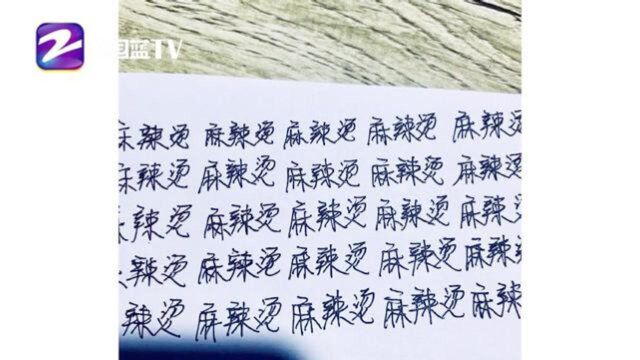 蓝TV
麻辣烫 麻辣烫 麻辣烫 麻辣烫 麻辣烫
麻辣烫 麻辣烫 麻辣烫 麻辣烫 麻辣烫
麻辣烫 麻辣烫 麻辣烫 麻辣烫 麻辣烫
辣烫 麻辣烫 麻辣烫 麻辣烫 麻辣
辣烫 麻辣烫 麻辣烫 麻辣烫 麻辣